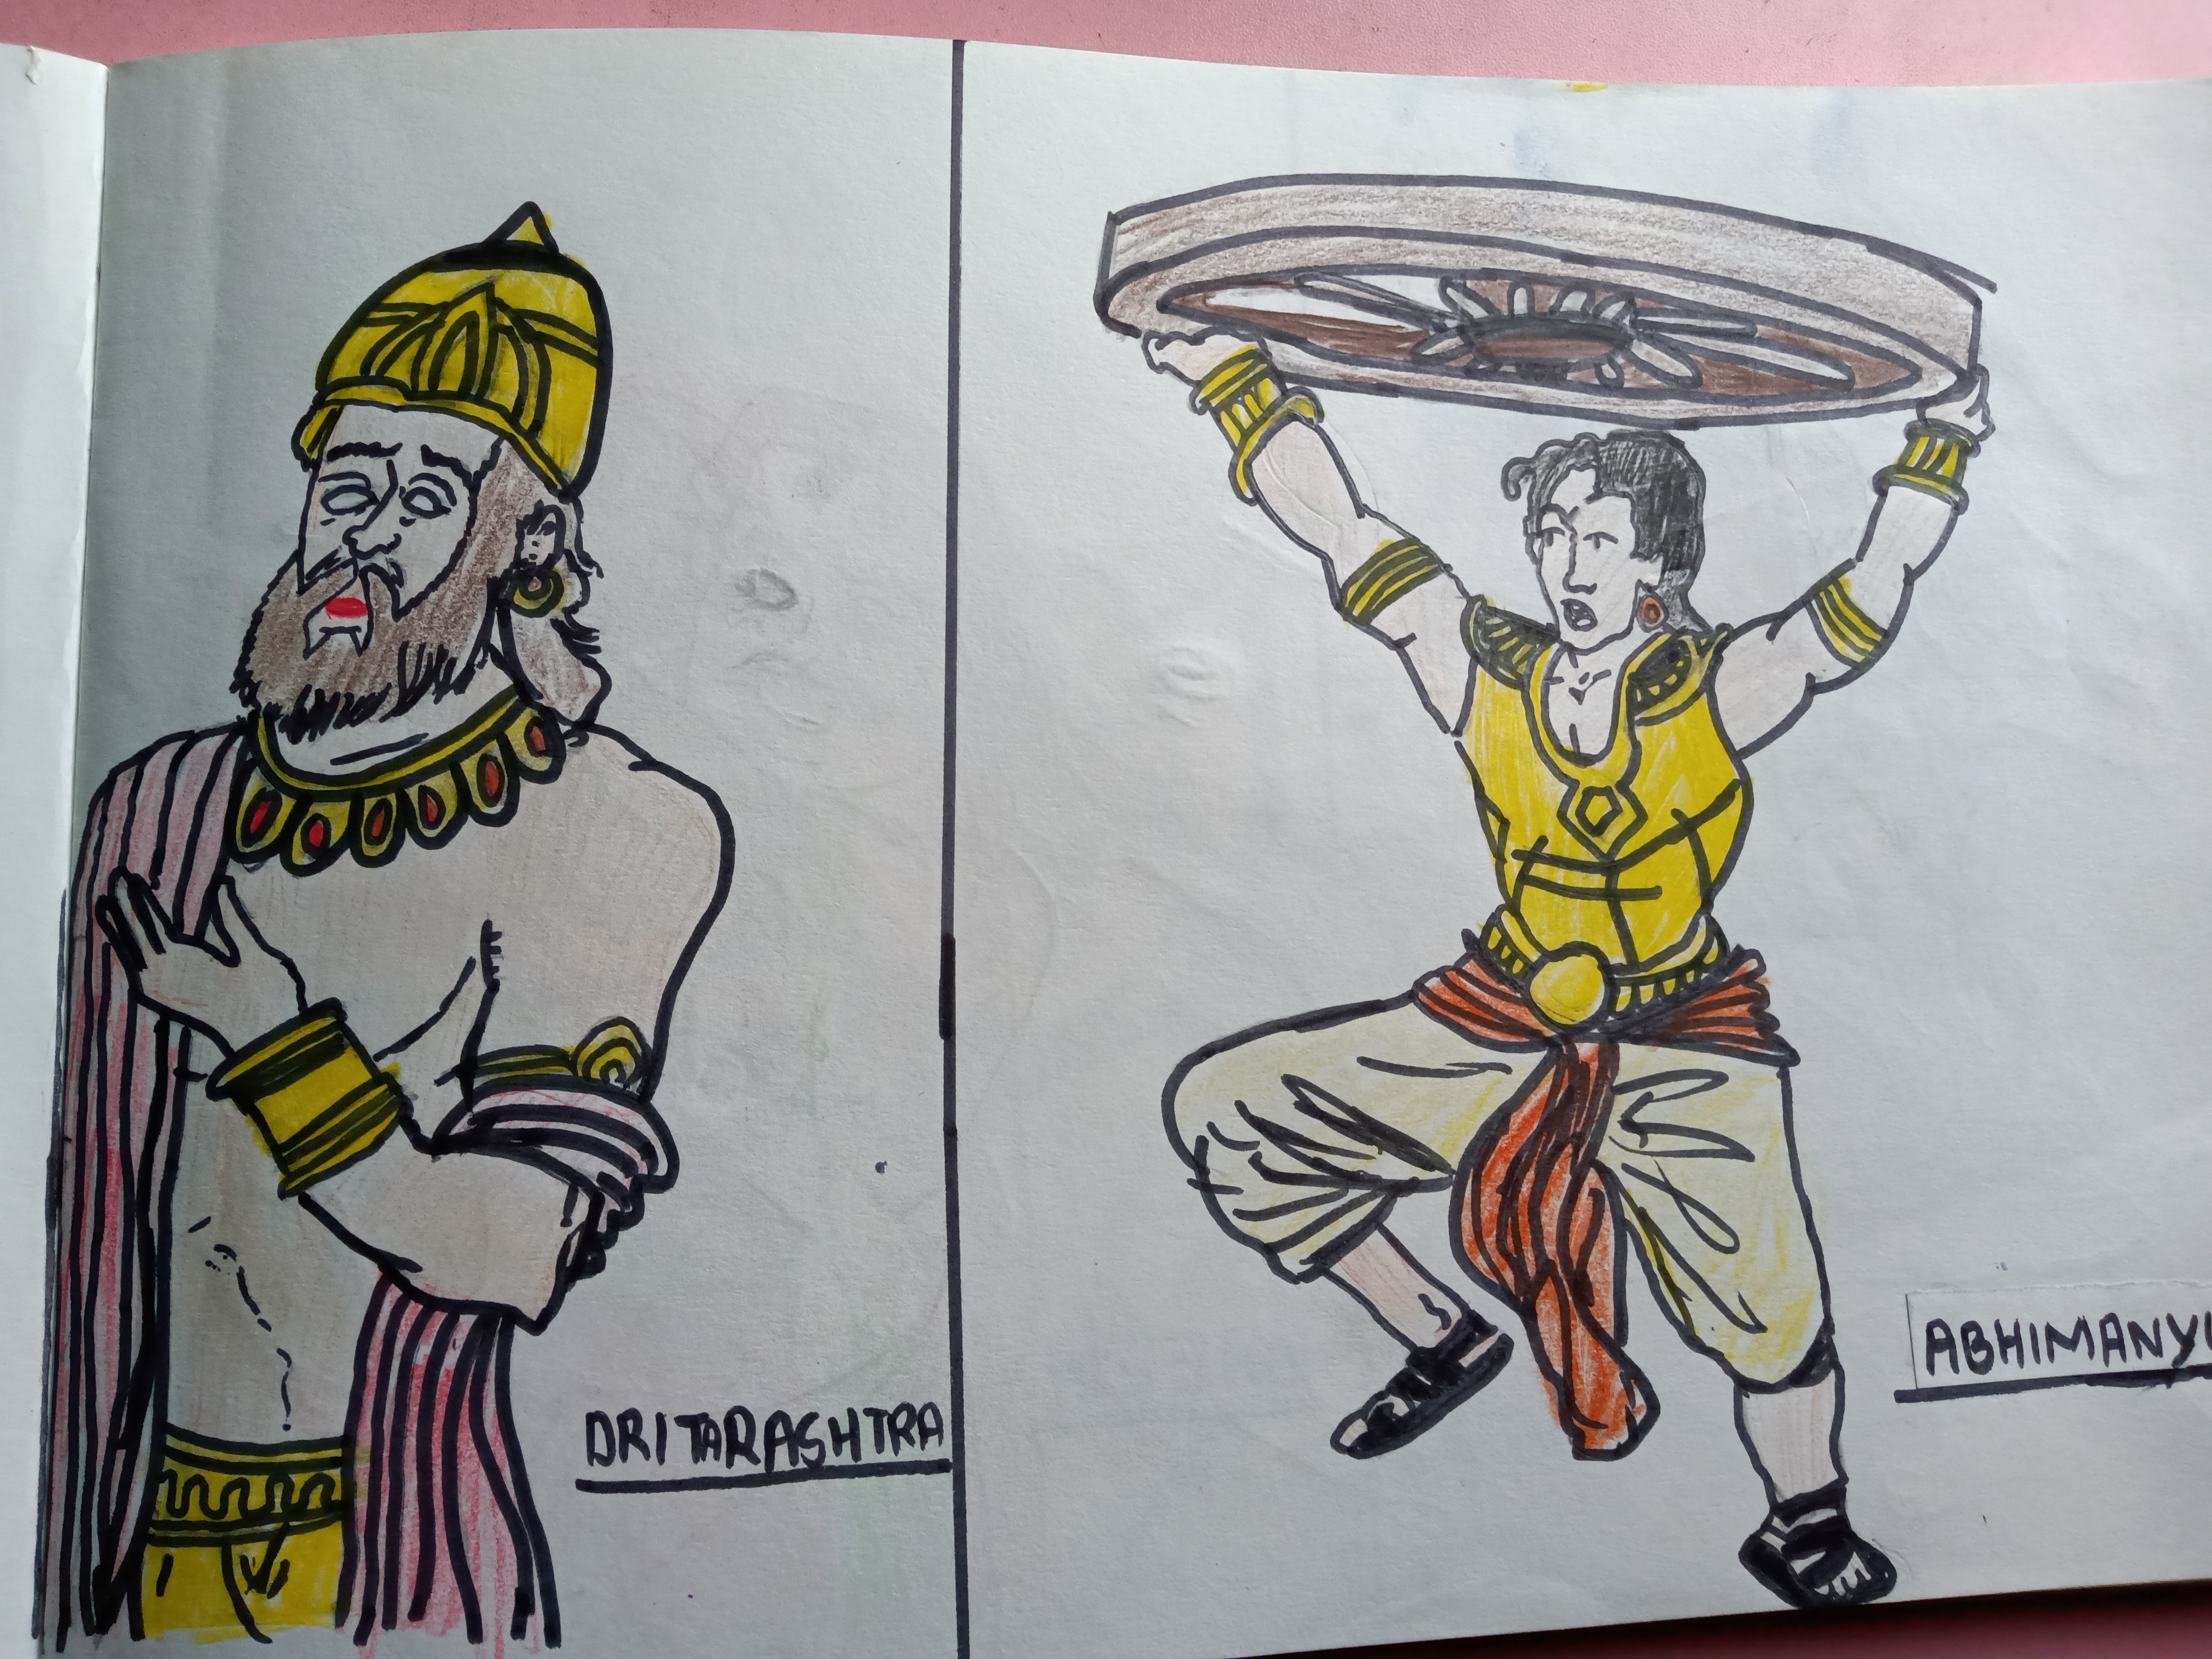 DRITARASHTRA
ABHIMANYU